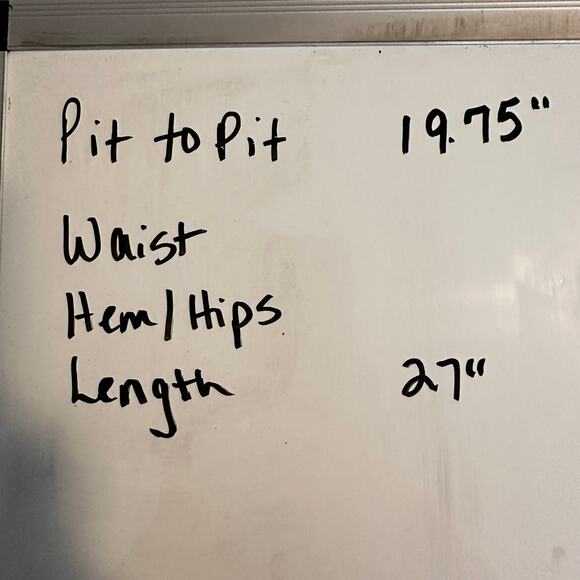 Pit to Pit 19.75"
Waist
Hem/Hips
Length 27"